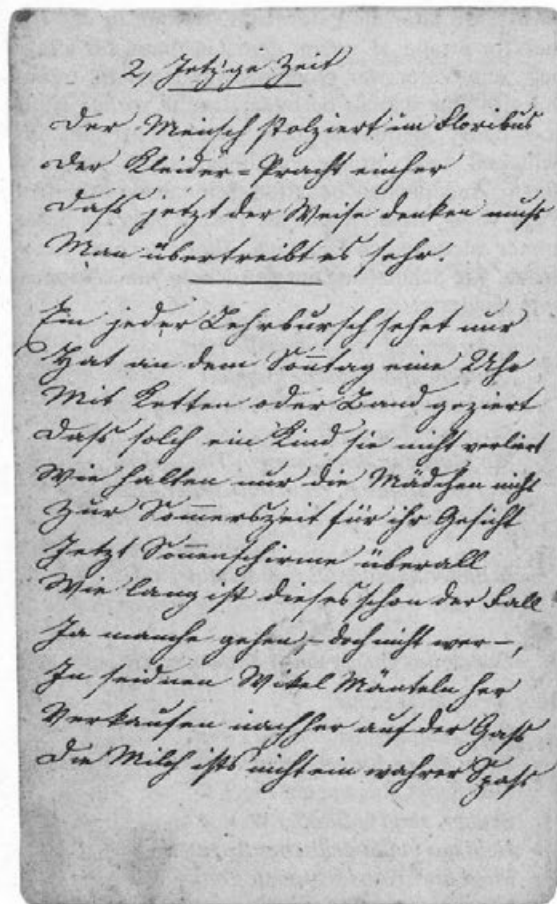 2, Jetzige Zeit
Der Mensch stolziert im Floribus
Der Kleider=Pracht einher
Dass jetzt der Weise denken muss
Man übertreibt es sehr.
Ein jeder Lehrbursch sehet nur
Hat an dem Sonntag eine Uhr
Mit Ketten oder Band geziert
Dass solch ein Kind sie nicht verliert
Wie halten nur die Mädchen nicht
Zur Sommerszeit für ihr Gesicht
Jetzt Sonnenschirme überall
Wie lang ist dieses schon der Fall
Ja manche gehen, – doch nicht wer –,
In seidnen Wikel Mänteln her
Verkaufen nachher auf der Gass
Die Milch ists nicht ein wahrer Spass